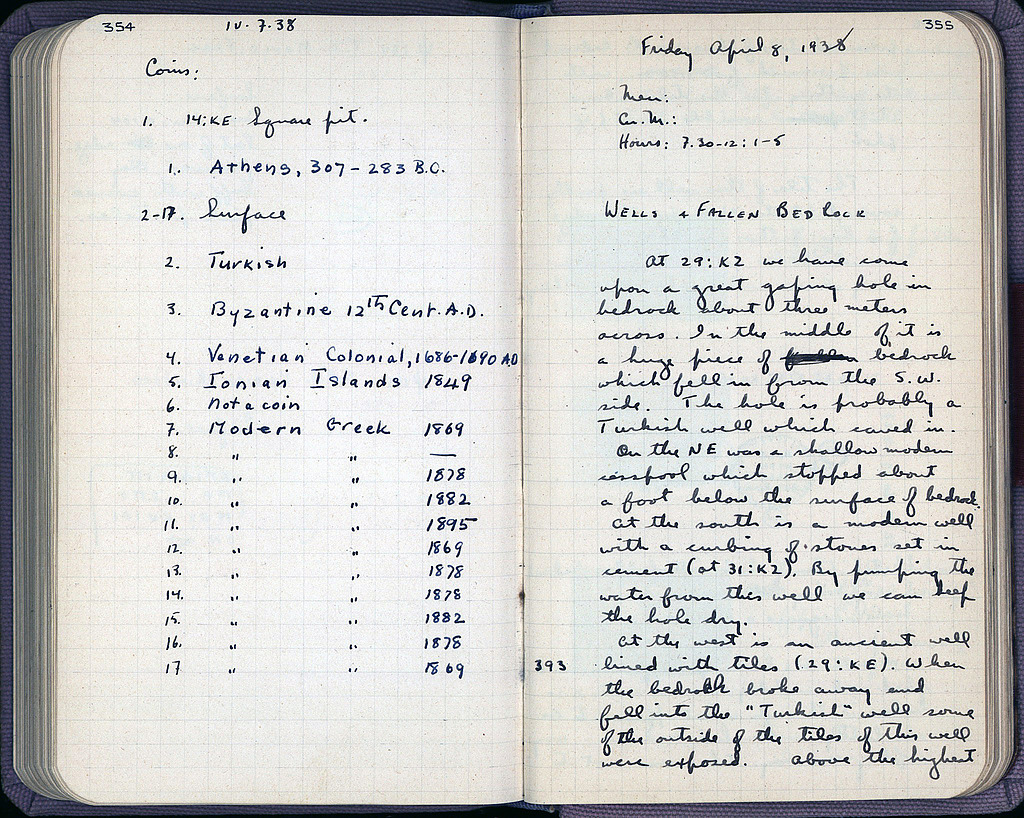 354
IV.7.38
Coins:
1. 14:KE Square pit.
1. Athens, 307-283 B.C.
2-17. Surface
2. Turkish
3. Byzantine 12th Cent. A.D.
4. Venetian Colonial, 1686-1690 AD
5. Ionian Islands 1849
6. Not a coin
7. Modern Greek 1869
8. " " —
9. " " 1878
10. " " 1882
11. " " 1895
12. " " 1869
13. " " 1878
14. " " 1878
15. " " 1882
16. " " 1878
17 " " 1869
355
Friday April 8, 1938
Men:
Cu. M.:
Hours: 7.30-12: 1-5
WELLS + FALLEN BED ROCK
At 29:KZ we have come
upon a great gaping hole in
bedrock about three meters
across. In the middle of it is
a huge piece of bedrock
which fell in from the S.W.
side. The hole is probably a
Turkish well which caved in.
On the NE was a shallow modern
cesspool which stopped about
a foot below the surface of bedrock.
At the south is a modern well
with a curbing of stones set in
cement (at 31:KZ). By pumping the
water from this well we can keep
the hole dry.
At the west is an ancient well
393 lined with tiles (29:KE). When
the bedrock broke away and
fell into the "Turkish" well some
of the outside of the tiles of this well
were exposed. Above the highest